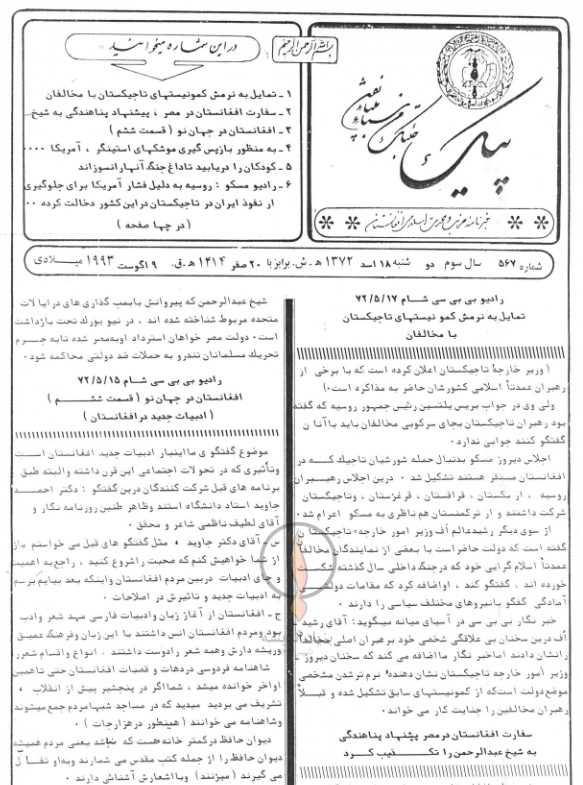 بسم الله الرحمن الرحیم
در این شماره میخوانید
۱ ـ تمایل به نرمش کمونیستهای تاجیکستان با مخالفان
۲ ـ سفارت افغانستان در مصر ، پیشنهاد پناهندگی به شیخ ۰۰
۳ ـ افغانستان در جهان نو ( قسمت ششم )
۴ ـ به منظور بازپس گیری موشکهای استینگر ، آمریکا ۰۰۰۰
۵ ـ کودکان را دریابید تا داغ جنگ آنها را نسوزاند
۶ ـ رادیو مسکو : روسیه به دلیل فشار آمریکا برای جلوگیری
از نفوذ ایران در تاجیکستان در این کشور دخالت کرده ۰۰
( در چها صفحه )
پیک
خبرنامه
اسلامی افغانستان
شماره ۵۶۷ سال سوم دو شنبه ۱۸ اسد ۱۳۷۲ ه‍ـ ش. برابز با ۲۰ صفر ۱۴۱۴ ه‍ـ ق. ۹ اگوست ۱۹۹۳ میلادی
رادیو بی بی سی شام ۷۲/۵/۱۷
تمایل به نرمش کمو نیستهای تاجیکستان
با مخالفان
( وزیر خارجهٔ تاجیکستان اعلان کرده است که با برخی از
رهبران عمدتاً اسلامی کشورشان حاضر به مذاکره است۰)
ولی وی در جواب بریس یلتسین رئیس جمهور روسیه که گفته
بود رهبران تاجیکستان بجای سرکوبی مخالفان باید با آنا ن
گفتگو کنند جوابی ندارد ۰
اجلاس دیروز مسکو بدنبال حمله شورشیان تاجیك کـه در
افغانستان مستقر هستند تشکیل شد ۰ درین اجلاس رهبـران
روسیه ، ازبکستان ، قزاقستان ، قرغزستان ، وتاجیکستان
شرکت داشتند و از ترکمنستان هم ناظری به مسکو اعزام شد۰
از سوی دیگر رشید عالم أف وزیر امور خارجه تاجیکستا ن
گفته است که دولت حاضر است با بعضی از نمایندگان مخالفا
عمدتاً اسلام گرایی خود که در جنگ داخلی سال گذشته شکست
خورده اند ، گفتگو کند ، او اضافه کرد که مقامات دولتـ
آمادگی گفگو با نیروهای مختلف سیاسی را دارند ۰
خبر نگار بی بی سی در آسیای میانه میگوید: آقای رشید
أف درین سخنان بی علاقگی شخصی خود بر هبران اصلی مخالفا
رانشان دادند اما خبر نگار ما اضافه می کند که سخنان دیروز
وزیر آمور خارجه تاجیکستان نشان دهنده ٔ نرم تر شدن مشخصی
موضع دولت است که از کمونیستهای سابق تشکیل شده و قبـلاً
رهبران مخالفین را جنایت کار می خواند ۰
سفارت افغانستان در مصر پیشنهاد پناهندگی
به شیخ عبدالرحمن را تکــذیب کــرد
شیخ عبدالرحمن که پیروانش با بمب گذاری های در ایا لات
متحده مربوط شناخته شده اند ، در نیو یورك تحت بازداشت
است۰ دولت مصر خواهان استرداد او به مصر شده تا به جــرم
تحریك مسلمانان تندرو به حملات ضد دولتی محاکمه شود۰
رادیو بی بی سی شام ۷۲/۵/۱۵
افغانستان در جهان نو ( قسمت ششـــم )
( ادبیات جدید در افغانستان )
موضوع گفتگو ی ما اینبار ادبیات جدید افغانستان اســت
وتأثیری که در تحولات اجتماعی این قرن داشته والبته طبق
برنامه های قبل شرکت کنندگان درین گفتگو : دکتر احمــد
جاوید استاد دانشگاه استند وظاهر طنین روزنامه نگار و
آقای لطیف ناظمی شاعر و محقق ۰
س ـ آقای دکتر جاوید ، مثل گفتگو های قبل می خواستم باز
از شما خواهش کنم که صحبت را شروع کنید ، راجع به اهمیت
و جای ادبیات در بین مردم افغانستان واینکه بعد بیایم برسم
به ادبیات جدید و تاثیرش در اصلاحات ۰
ج ـ افغانستان از آغاز زبان وادبیات فارسی مهد شعر وادب
بود ومردم افغانستان انس داشتند با این زبان وفرهنگ عمیق
وریشه دارش وهمه شعر رادوست داشتند ، انواع واقسام شعررا
شاهنامه فردوسی در دهات و قصبات افغانستان حتی تا همین
اواخر خوانده میشد ، شما اگر در پنجشیر پیش از انقلاب ،
تشریف می بردید میدید که در مساجد شبها مردم جمع میشوند
وشاهنامه می خوانند ( همینطور در هزارجات ) ۰
دیوان حافظ در کمتر خانه هست که نباشد یعنی مردم همیشه
دیوان حافظ را از جمله کتب مقدس می شمارند وبه او تفـأ ل
می گیرند ( میزنند ) وبا اشعارش آشنائی دارند ۰